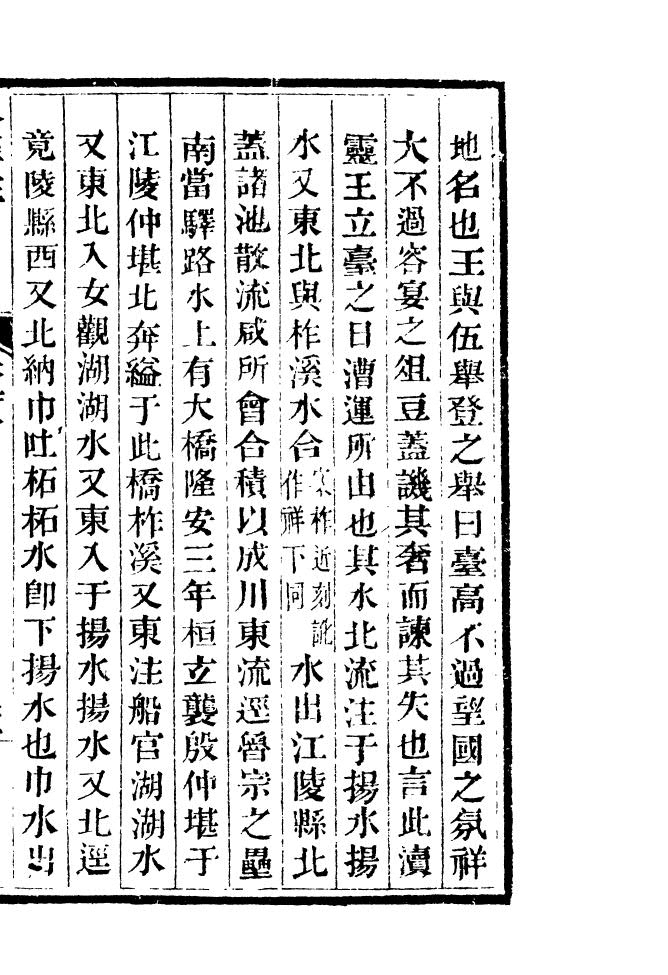 地名也王與伍舉登之舉曰臺高不過望國之氛祥
大不過容宴之俎豆蓋譏其奢而諫其失也言此瀆
靈王立臺之日漕運所由也其水北流注于揚水揚
水又東北與柞溪水合案柞近刻訛作祥下同水出江陵縣北
蓋諸池散流咸所會合積以成川東流逕魯宗之壘
南當驛路水上有大橋隆安三年桓玄襲殷仲堪于
江陵仲堪北奔縊于此橋柞溪又東注船官湖湖水
又東北入女觀湖湖水又東入于揚水揚水又北逕
竟陵縣西又北納巾吐柘柘水卽下揚水也巾水出